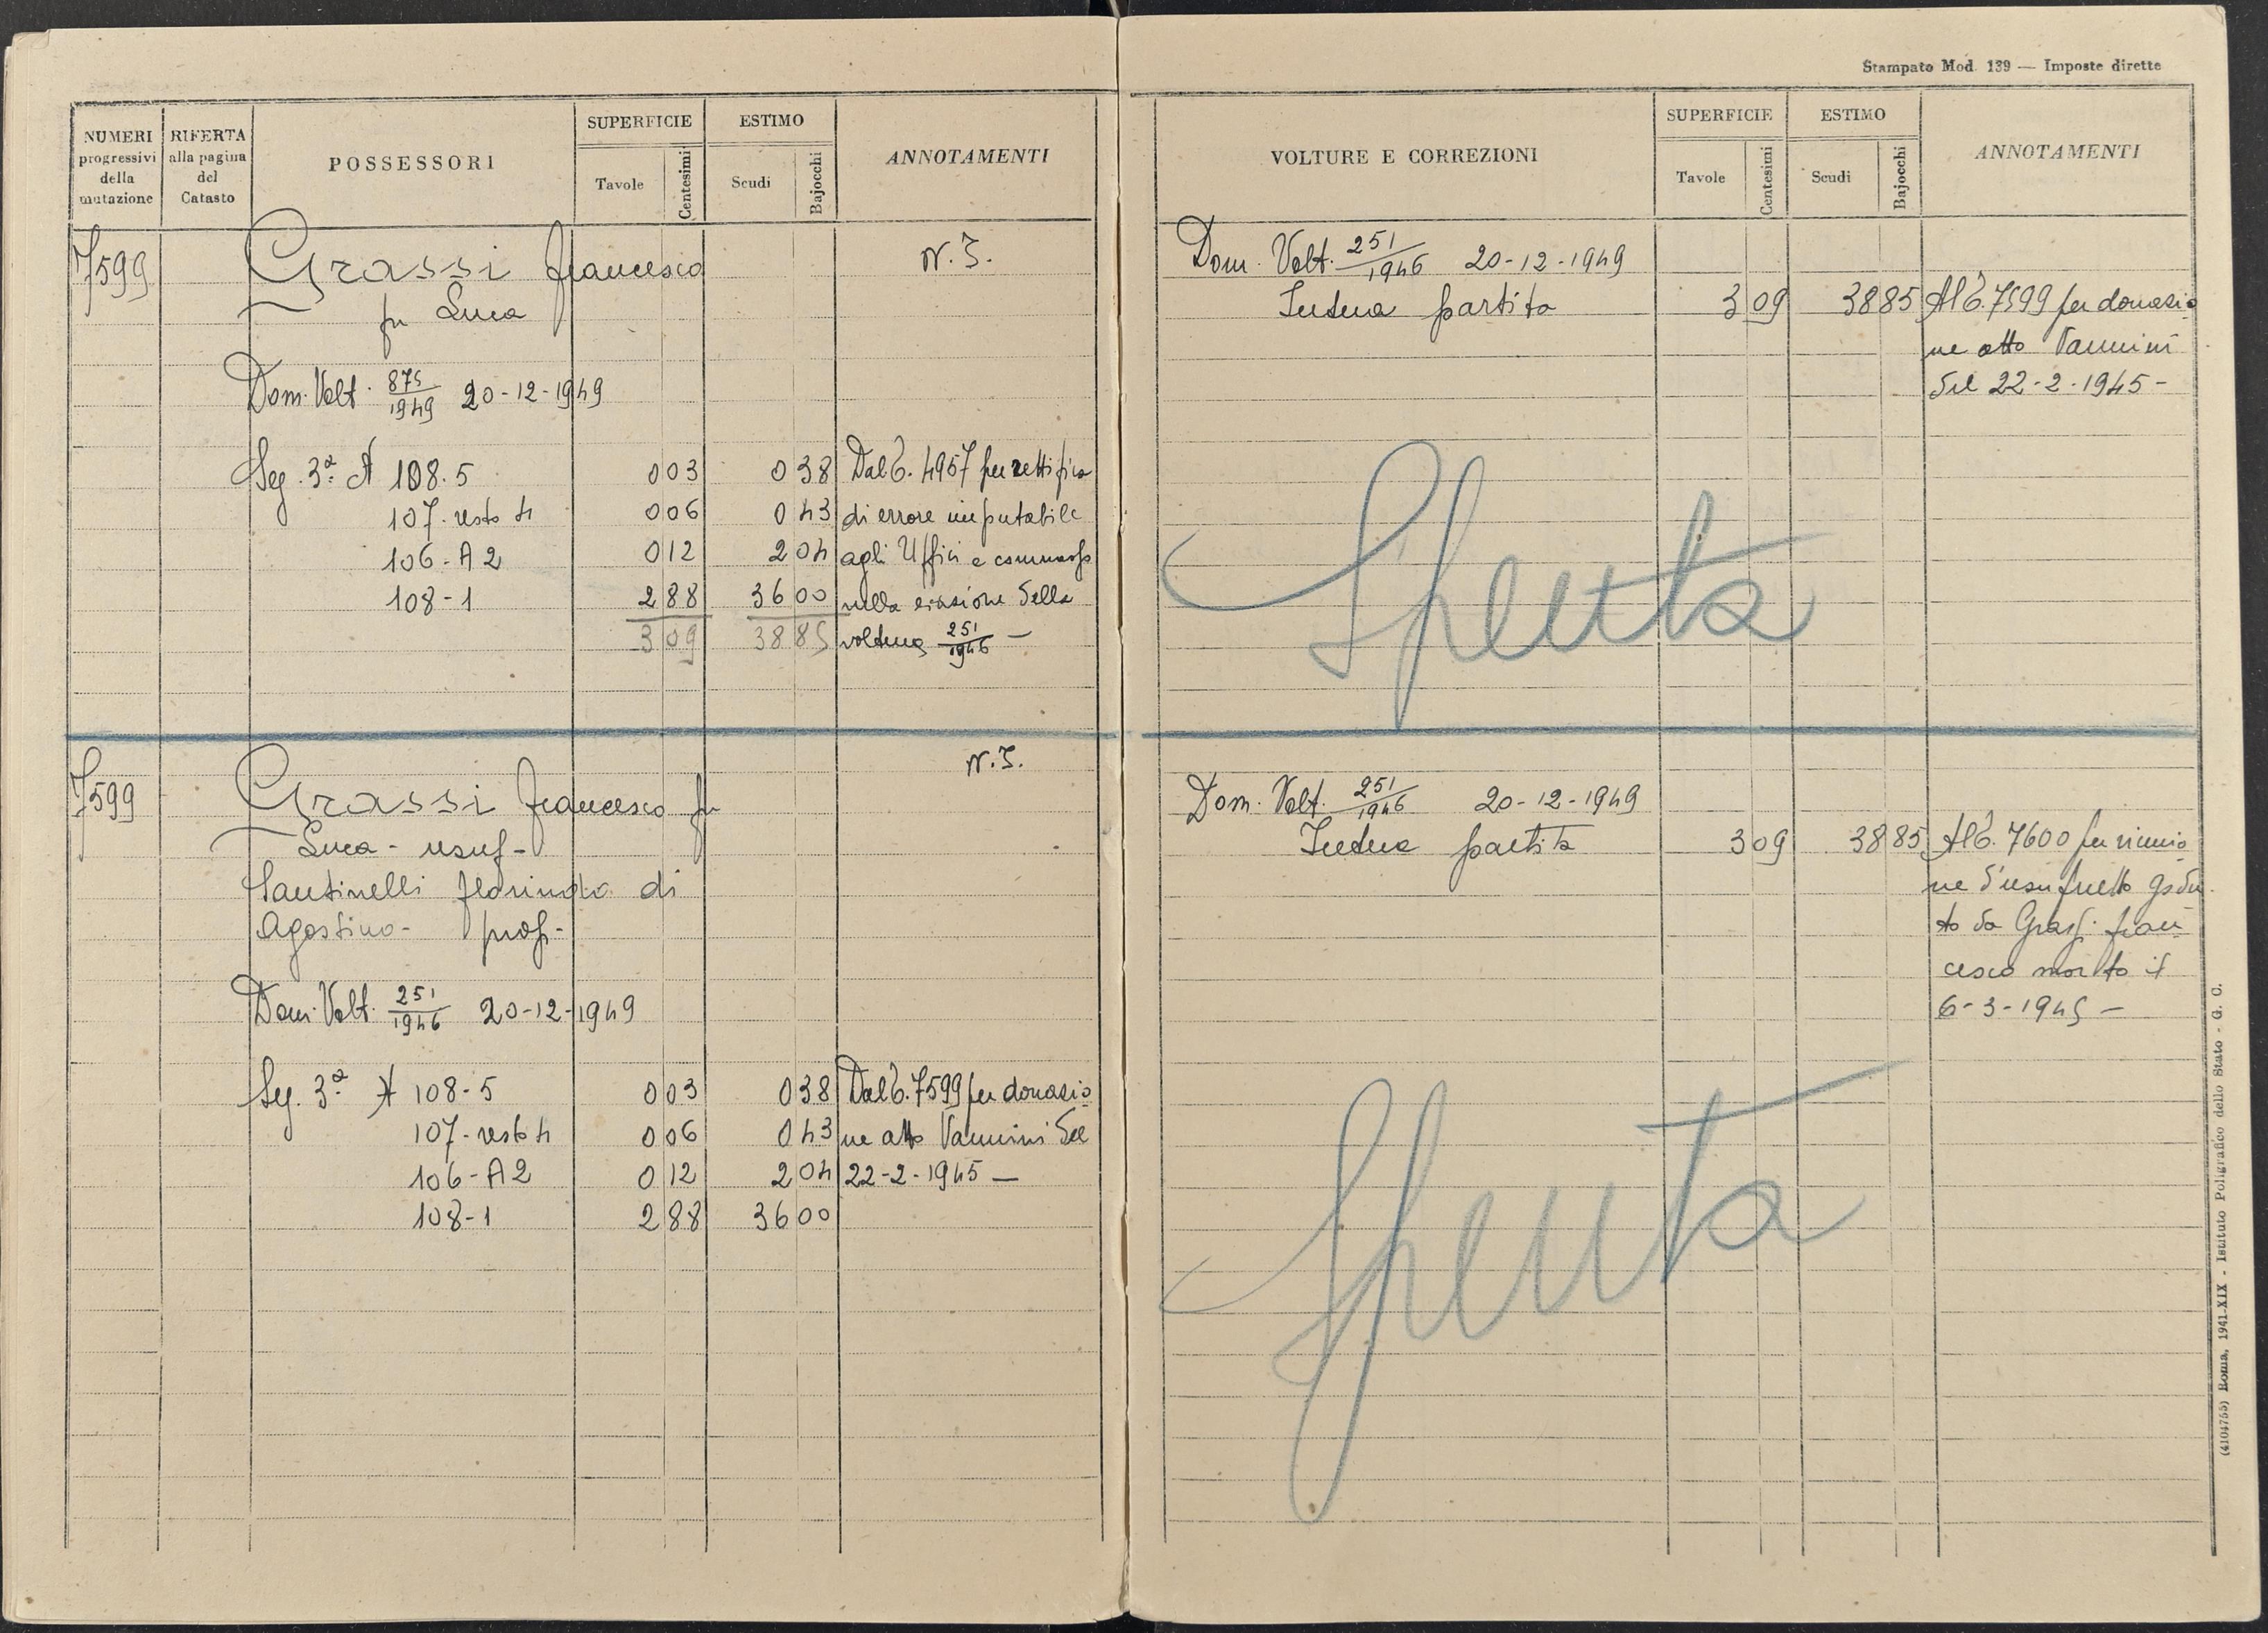 NUMERI progressivi della mutazione
RIFERTA alla pagina del Catasto
POSSESSORI
SUPERFICIE
Tavole
Centesimi
ESTIMO
Scudi
Bajocchi
ANNOTAMENTI
7599 Grassi Francesco N. I.
fu Luca
Dom. Volt. 875/1949 20-12-1949
Seg. 3ª A 108.5 0 03 0 38 Dal b. 4957 per rettifica
107. resto 4 0 06 0 43 di errore imputabile
106-A2 0 12 2 04 agli Uffici e commesso
108-1 2 88 36 00 nella evasione della
3 09 38 85 voltura 251/1946 —
7599 Grassi Francesco fu N. I.
Luca - usuf-
Santinelli Florindo di
Agostino- prop-
Dom. Volt. 251/1946 20-12-1949
Seg. 3ª A 108-5 0 03 0 38 Dal b. 7599 per donazio
107-resto 4 0 06 0 43 ne atto Vannini del
106-A2 0 12 2 04 22-2-1945 —
108-1 2 88 36 00
Stampato Mod. 139 — Imposte dirette
VOLTURE E CORREZIONI
SUPERFICIE
Tavole
Centesimi
ESTIMO
Scudi
Bajocchi
ANNOTAMENTI
Dom. Volt. 251/1946 20-12-1949
Intera partita 3 09 38 85 Al b. 7599 per donazio
ne atto Vannini
del 22-2-1945-
Spenta
Dom. Volt. 251/1946 20-12-1949
Intera partita 3 09 38 85 Al b. 7600 per riunio
ne d'usufrutto godu
to da Grassi Fran
cesco morto il
6-3-1945 —
Spenta
(4104755) Roma, 1941-XIX - Istituto Poligrafico dello Stato - G. C.